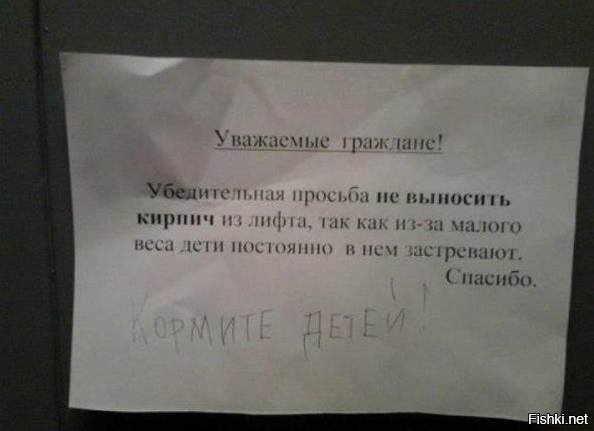 Уважаемые граждане!
Убедительная просьба не выносить
кирпич из лифта, так как из-за малого
веса дети постоянно в нем застревают.
Спасибо.
КОРМИТЕ ДЕТЕЙ!
Fishki.net